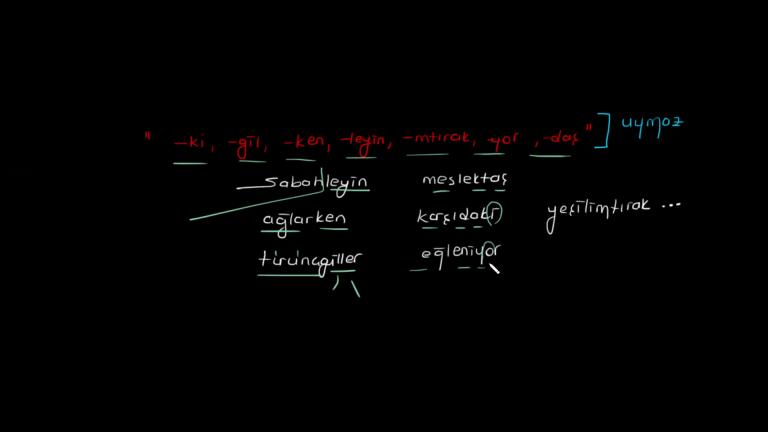 " -ki, -gil, -ken, -leyin, -mtırak, -yor, -daş" ] uymaz
sabahleyin meslektaş
ağlarken karşıdaki yeşilimtırak ...
turunçgiller eğleniyor